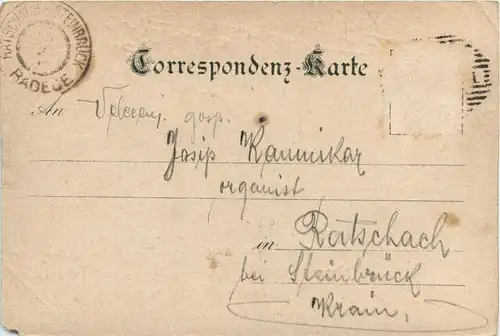 RATSCHACH B. STEINBRÜCK
RADEČE
Correspondenz-Karte
An Velecenj. gosp.
Josip Kaunikar
organist
in Ratschach
bei Steinbrück
Krain.